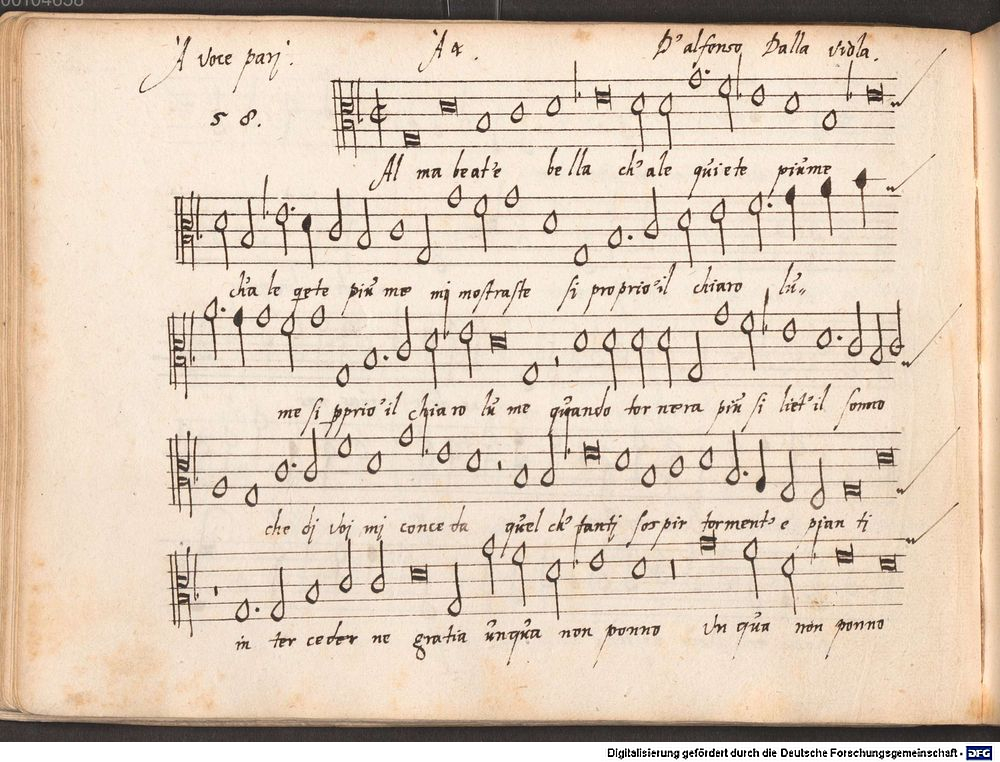 00104638
A voce pari. A 4. D'alfonso Dalla viola.
58.
Al ma beat'e bella ch'ale quiete piu me
ch'a le qete piu me mi mostraste si proprio'il chiaro lu"
me si pprio'il chiaro lu me quando tornera piu si liet'il sonno
che di voi mi conceda quel ch'tanti sospir torment'e pianti
in ter ceder ne gratia unqua non ponno Un qua non ponno
Digitalisierung gefördert durch die Deutsche Forschungsgemeinschaft - DFG